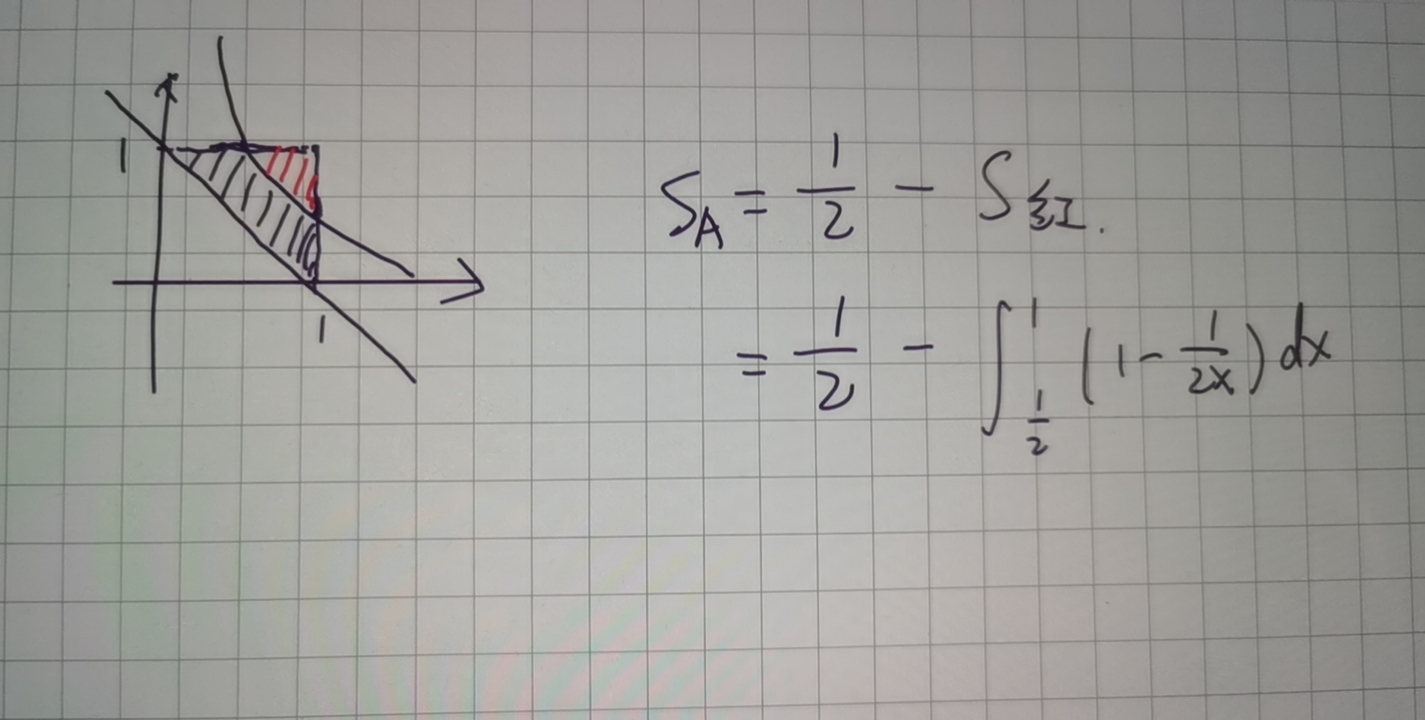 1
1
S_A = 1/2 - S红.
= 1/2 - ∫_{1/2}^{1} (1 - 1/(2x)) dx